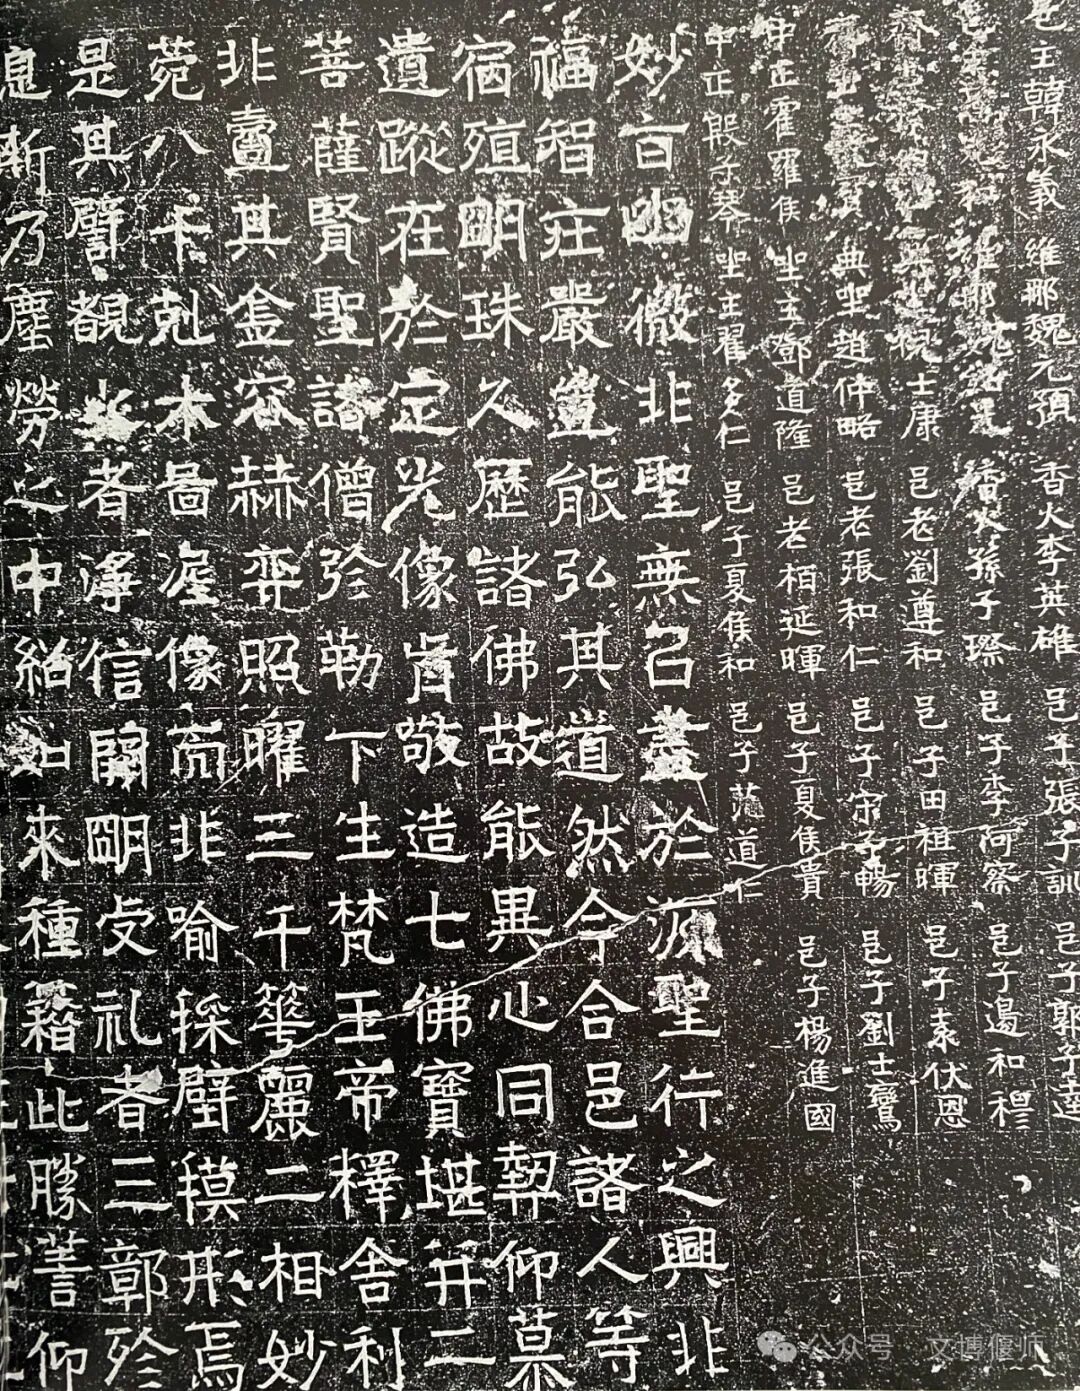 邑主韓永義 維那魏元預 香火李英雄 邑子張子訓 邑子郭子達
和 維那 香火孫子璨 邑子李阿察 邑子邊和穆
士康 邑老劉遵和 邑子田祖暉 邑子袁伏恩
典坐趙仲略 邑老張和仁 邑子宗子暢 邑子劉士鸞
中正霍羅侯 坐主鄧道隆 邑老栢延暉 邑子夏侯貴 邑子楊進國
中正殷子琴 坐主翟多仁 邑子夏侯和 邑子范道仁
妙旨幽微非聖無以盡於源聖行之興非
福智莊嚴豈能弘其道然今合邑諸人等
宿殖明珠久歷諸佛故能異心同契仰慕
遺蹤在於定光像背敬造七佛寶堪并二
菩薩賢聖諸僧弥勒下生梵王帝釋舍利
非臺其金容赫弈照曜三千華麗二相妙
菀八千剋木啚虛像而非喻採壁摸形焉
是其譬覩者淨信開明受礼者三鄣殄
息斯乃塵勞之中紹如來種籍此勝善仰